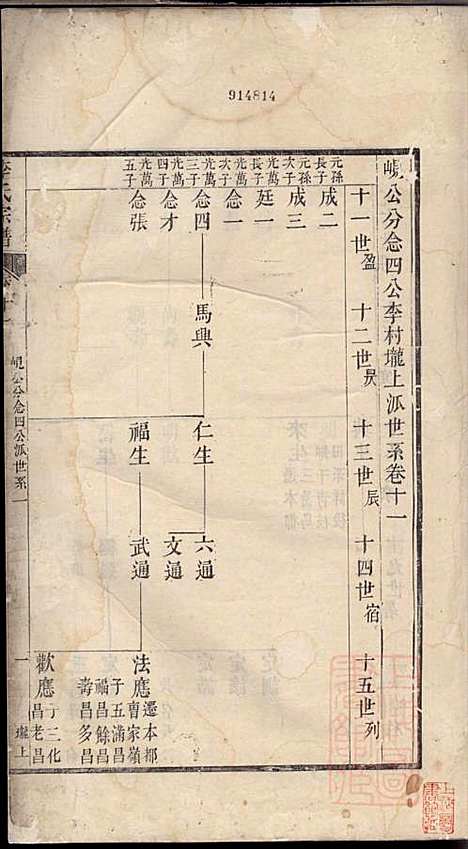 914814
峴公分念四公李村壠上派世系卷十一
十一世盈 十二世昃 十三世辰 十四世宿 十五世列
元孫長子 成二
元孫次子 成三
長子 廷一
光萬次子 念一
光萬三子 念四 馬興 仁生 六通
光萬四子 念才 文通
光萬五子 念張 福生 武通 法應 遷本都曹家嶺
子五 滿昌 餘昌 多昌 福昌 壽昌
歡應 子三 化昌 老昌 昌
氏宗譜
峴公分念四公派世系 一
一 壠上